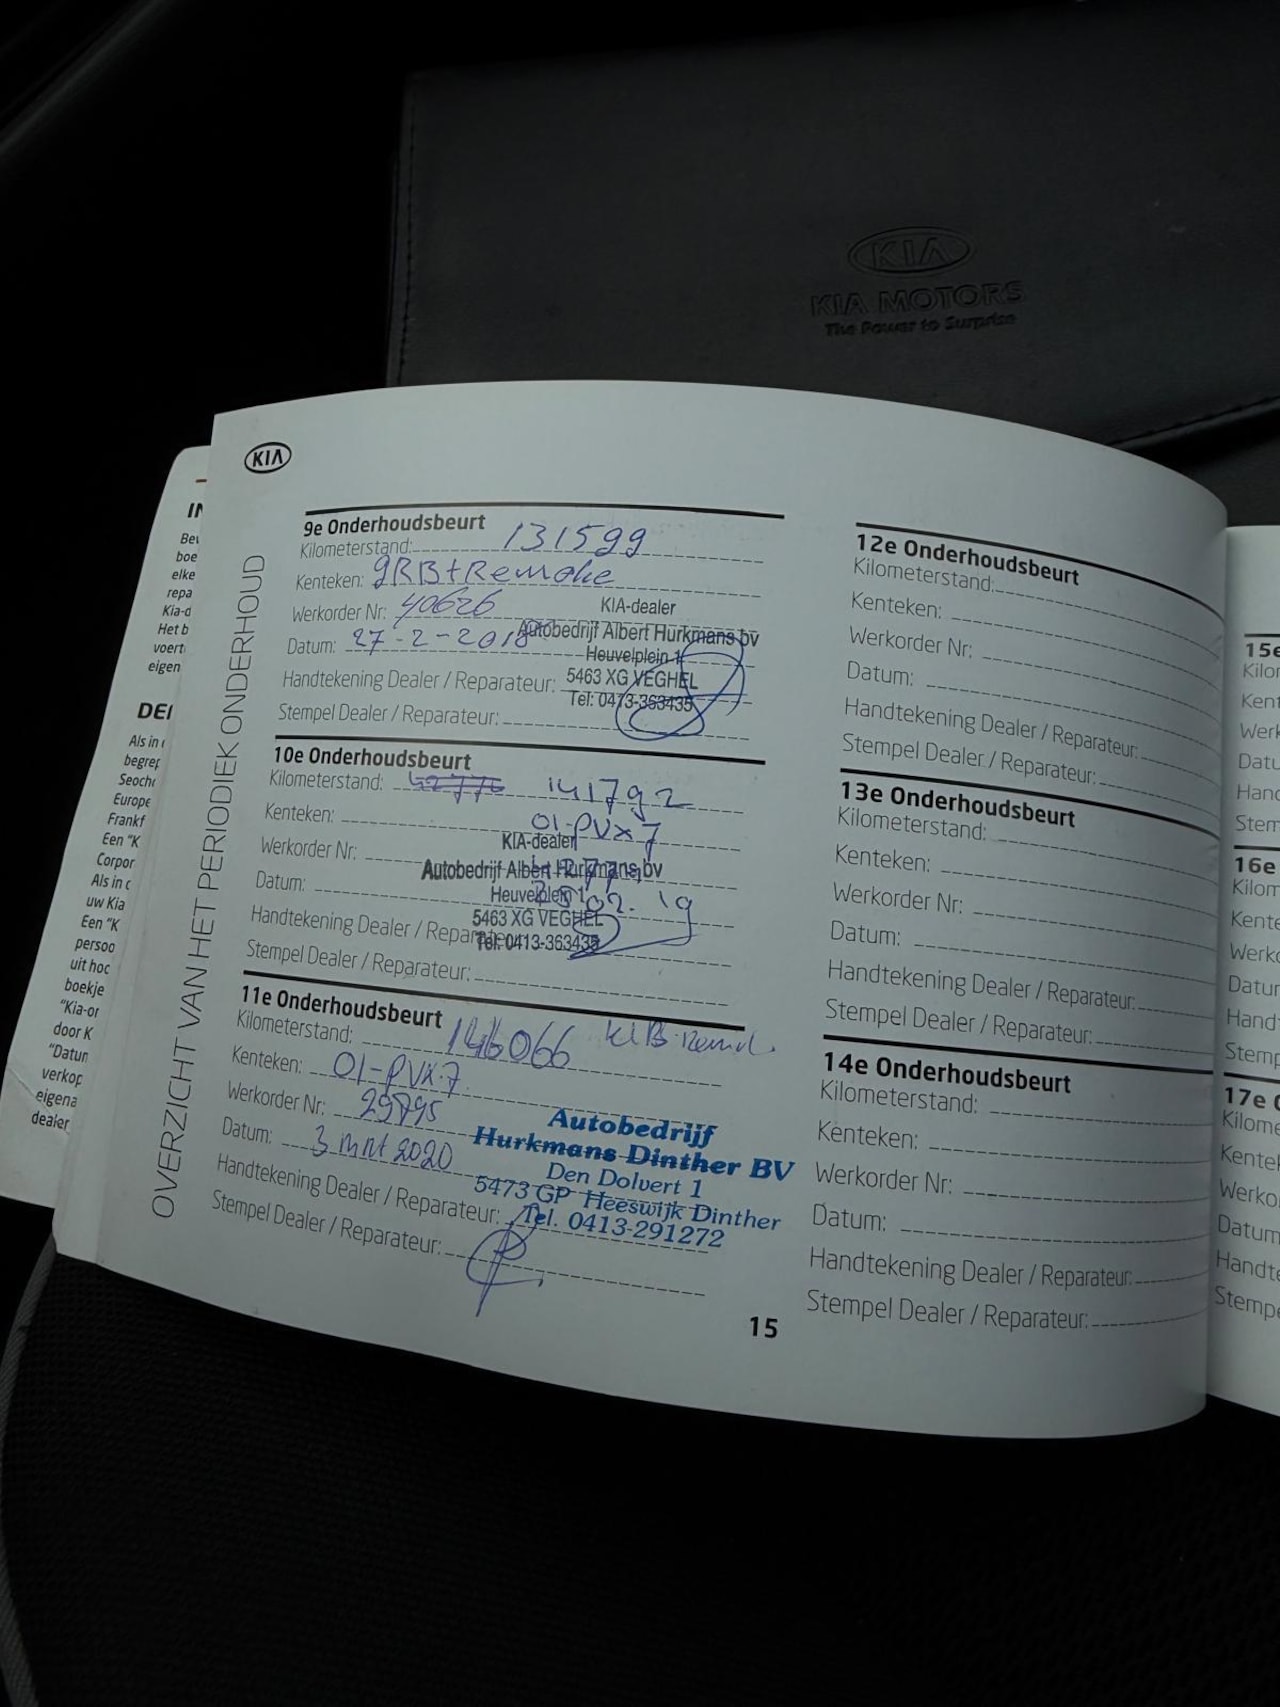 KIA
KIA MOTORS
The Power to Surprise
KIA
OVERZICHT VAN HET PERIODIEK ONDERHOUD
9e Onderhoudsbeurt
Kilometerstand: 131599
Kenteken: gRB+Remolie
Werkorder Nr: 40626
Datum: 27-2-2018
Handtekening Dealer / Reparateur:
Stempel Dealer / Reparateur:
KIA-dealer
Autobedrijf Albert Hurkmans bv
Heuvelplein 1
5463 XG VEGHEL
Tel: 0473-363435
10e Onderhoudsbeurt
Kilometerstand: 141792
Kenteken: 01-PVX7
Werkorder Nr:
Datum: 02.19
Handtekening Dealer / Reparateur:
Stempel Dealer / Reparateur:
KIA-dealer
Autobedrijf Albert Hurkmans bv
Heuvelplein 1
5463 XG VEGHEL
Tel: 0413-363435
11e Onderhoudsbeurt
Kilometerstand: 146066
Kenteken: 01-PVX-7
Werkorder Nr: 29795
Datum: 3 mrt 2020
Handtekening Dealer / Reparateur:
Stempel Dealer / Reparateur:
Autobedrijf
Hurkmans Dinther BV
Den Dolvert 1
5473 GP Heeswijk Dinther
Tel. 0413-291272
15
12e Onderhoudsbeurt
Kilometerstand:
Kenteken:
Werkorder Nr:
Datum:
Handtekening Dealer / Reparateur:
Stempel Dealer / Reparateur:
13e Onderhoudsbeurt
Kilometerstand:
Kenteken:
Werkorder Nr:
Datum:
Handtekening Dealer / Reparateur:
Stempel Dealer / Reparateur:
14e Onderhoudsbeurt
Kilometerstand:
Kenteken:
Werkorder Nr:
Datum:
Handtekening Dealer / Reparateur:
Stempel Dealer / Reparateur:
15e
16e
17e